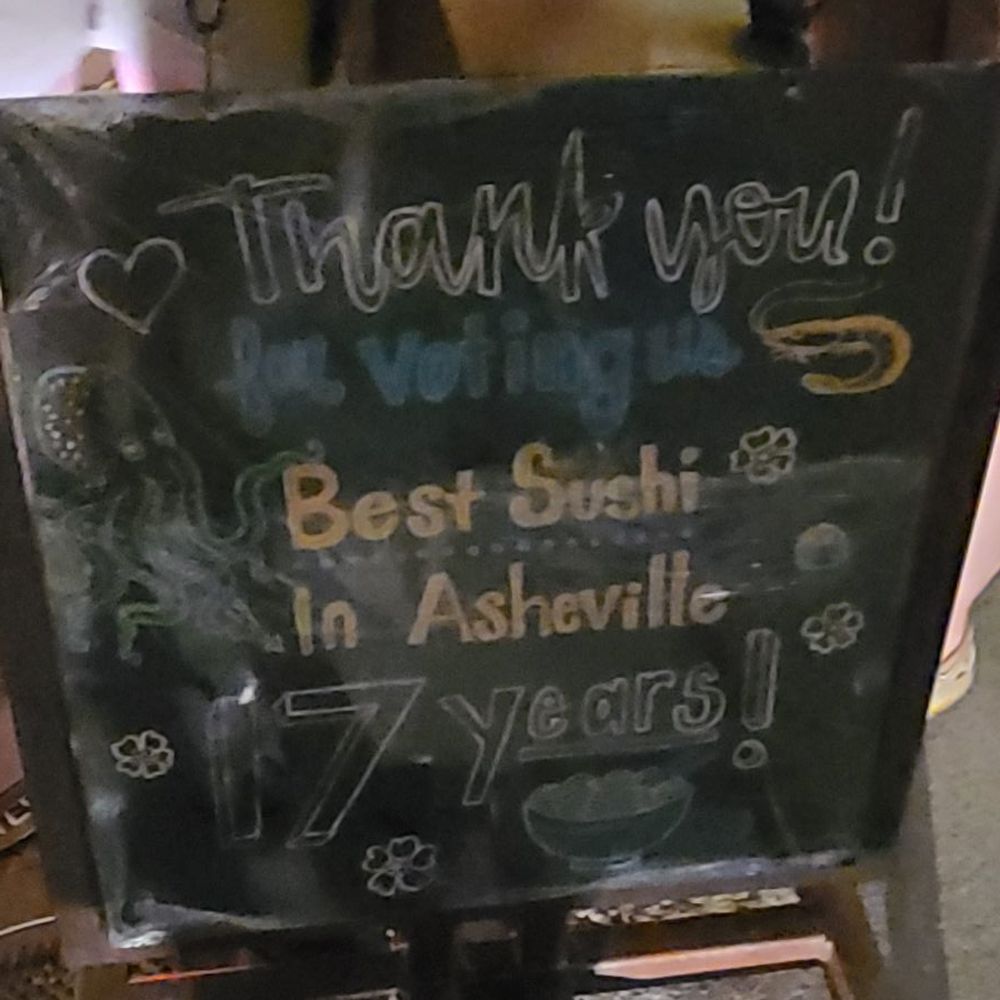 Thank you!
for voting us
Best Sushi
In Asheville
17 years!